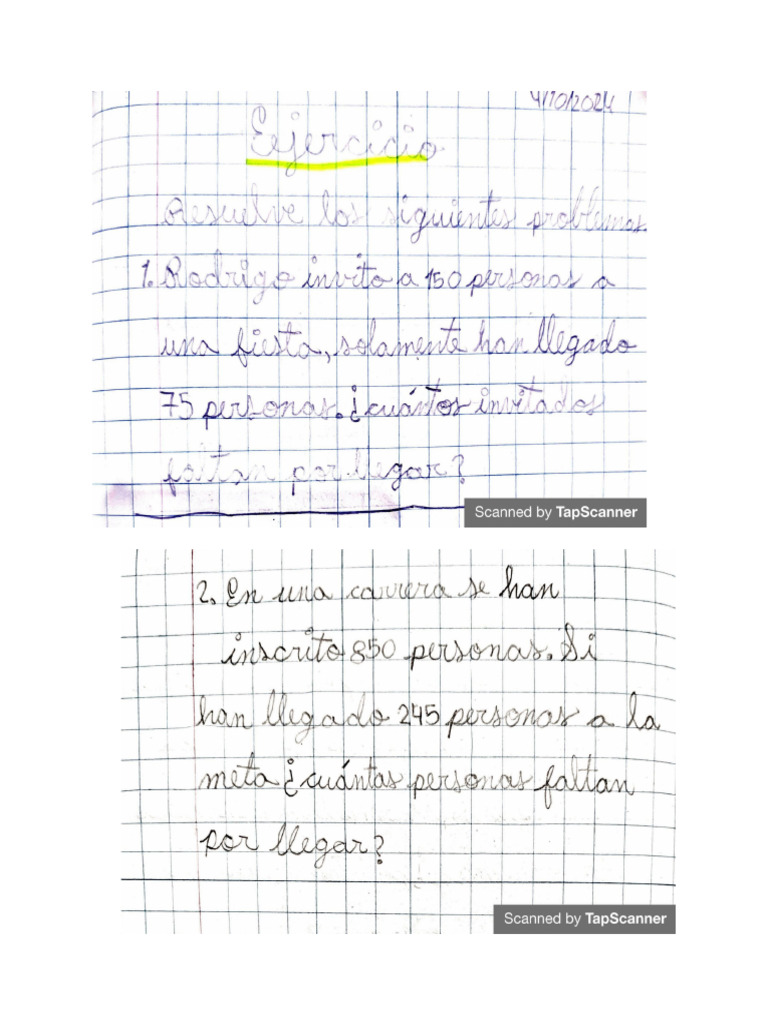 4/10/2024
Ejercicio
Resuelve los siguientes problemas.
1. Rodrigo invito a 150 personas a
una fiesta, solamente han llegado
75 personas. ¿cuántos invitados
faltan por llegar?
Scanned by TapScanner
2. En una carrera se han
inscrito 850 personas. Si
han llegado 245 personas a la
meta ¿cuántas personas faltan
por llegar?
Scanned by TapScanner